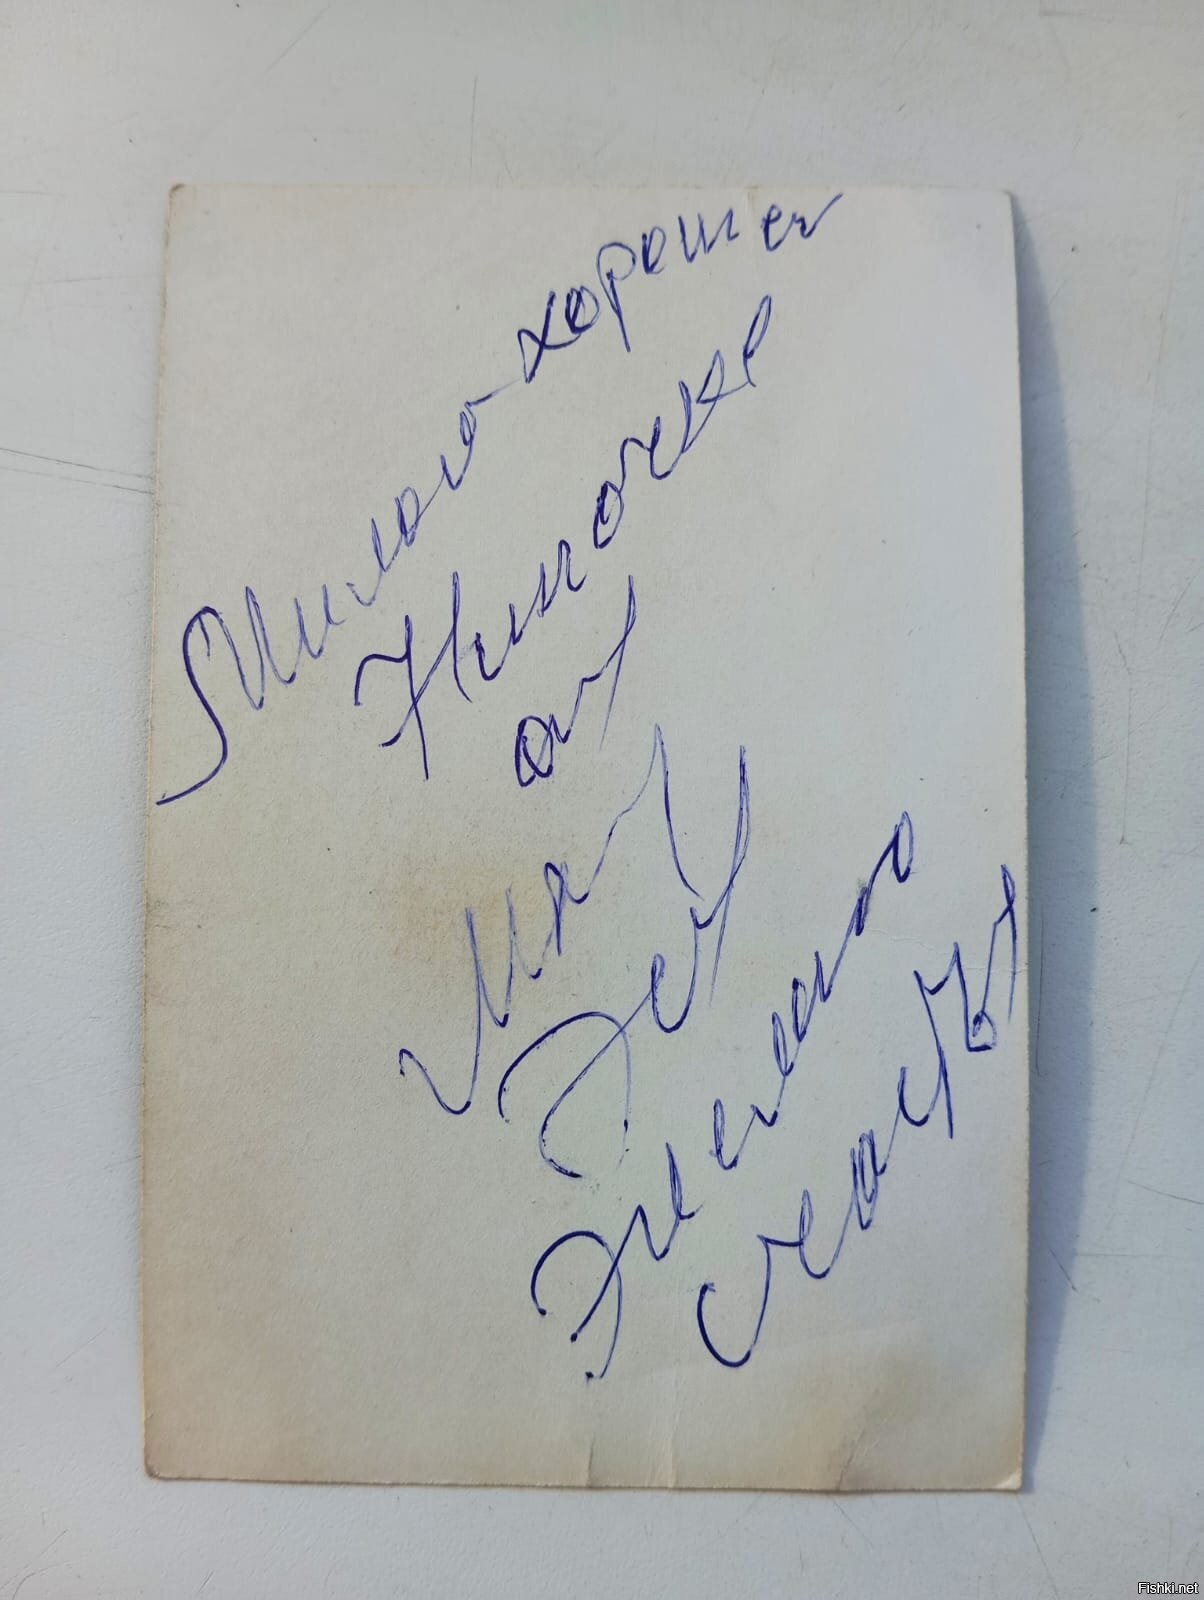 Милой хорошей
Ниночке
от
Мая
Эст
Желаю
счастья
Fishki.net